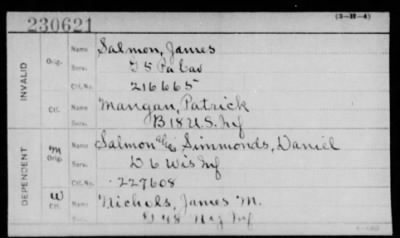 230621
(3-H-4)
INVALID
Orig. Name Salmon, James
Serv. I 5 Pa Cav
Ctf.No. 216665
Ctf. Name Mangan, Patrick
Serv. B 18 U.S. Inf
DEPENDENT
M Orig. Name Salmon Simmonds, Daniel
Serv. D 6 Wis Inf
Ctf.No. 227608
W Ctf. Name Nichols, James M.
Serv. 48 N.Y. Inf